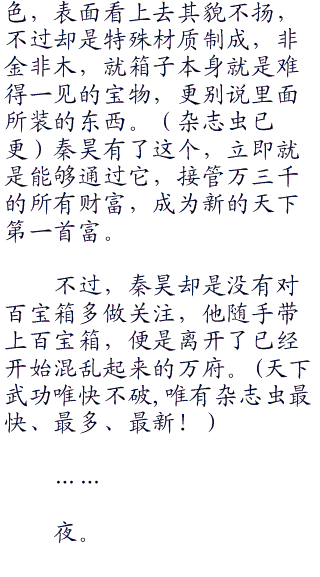 色，表面看上去其貌不扬，
不过却是特殊材质制成，非
金非木，就箱子本身就是难
得一见的宝物，更别说里面
所装的东西。（杂志虫已
更）秦昊有了这个，立即就
是能够通过它，接管万三千
的所有财富，成为新的天下
第一首富。
不过，秦昊却是没有对
百宝箱多做关注，他随手带
上百宝箱，便是离开了已经
开始混乱起来的万府。(天下
武功唯快不破,唯有杂志虫最
快、最多、最新！）
……
夜。